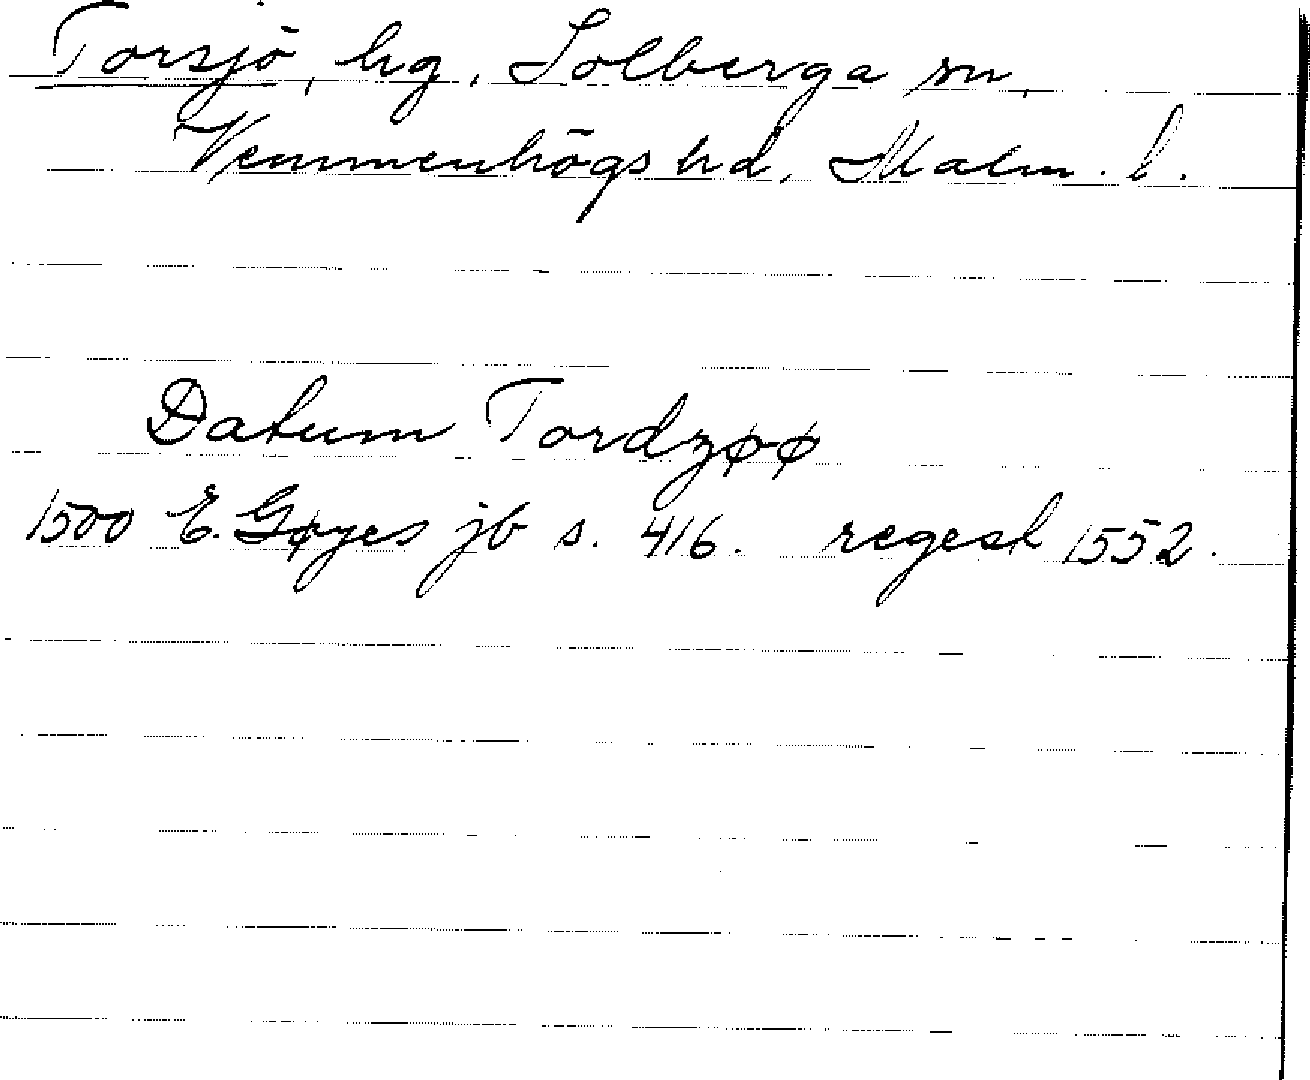 Torsjö, hg, Solberga sn,
Vemmenhögs hd, Malm. l.
Datum Tordzøø
1500 E. Gøyes jb s. 416. regest 1552.